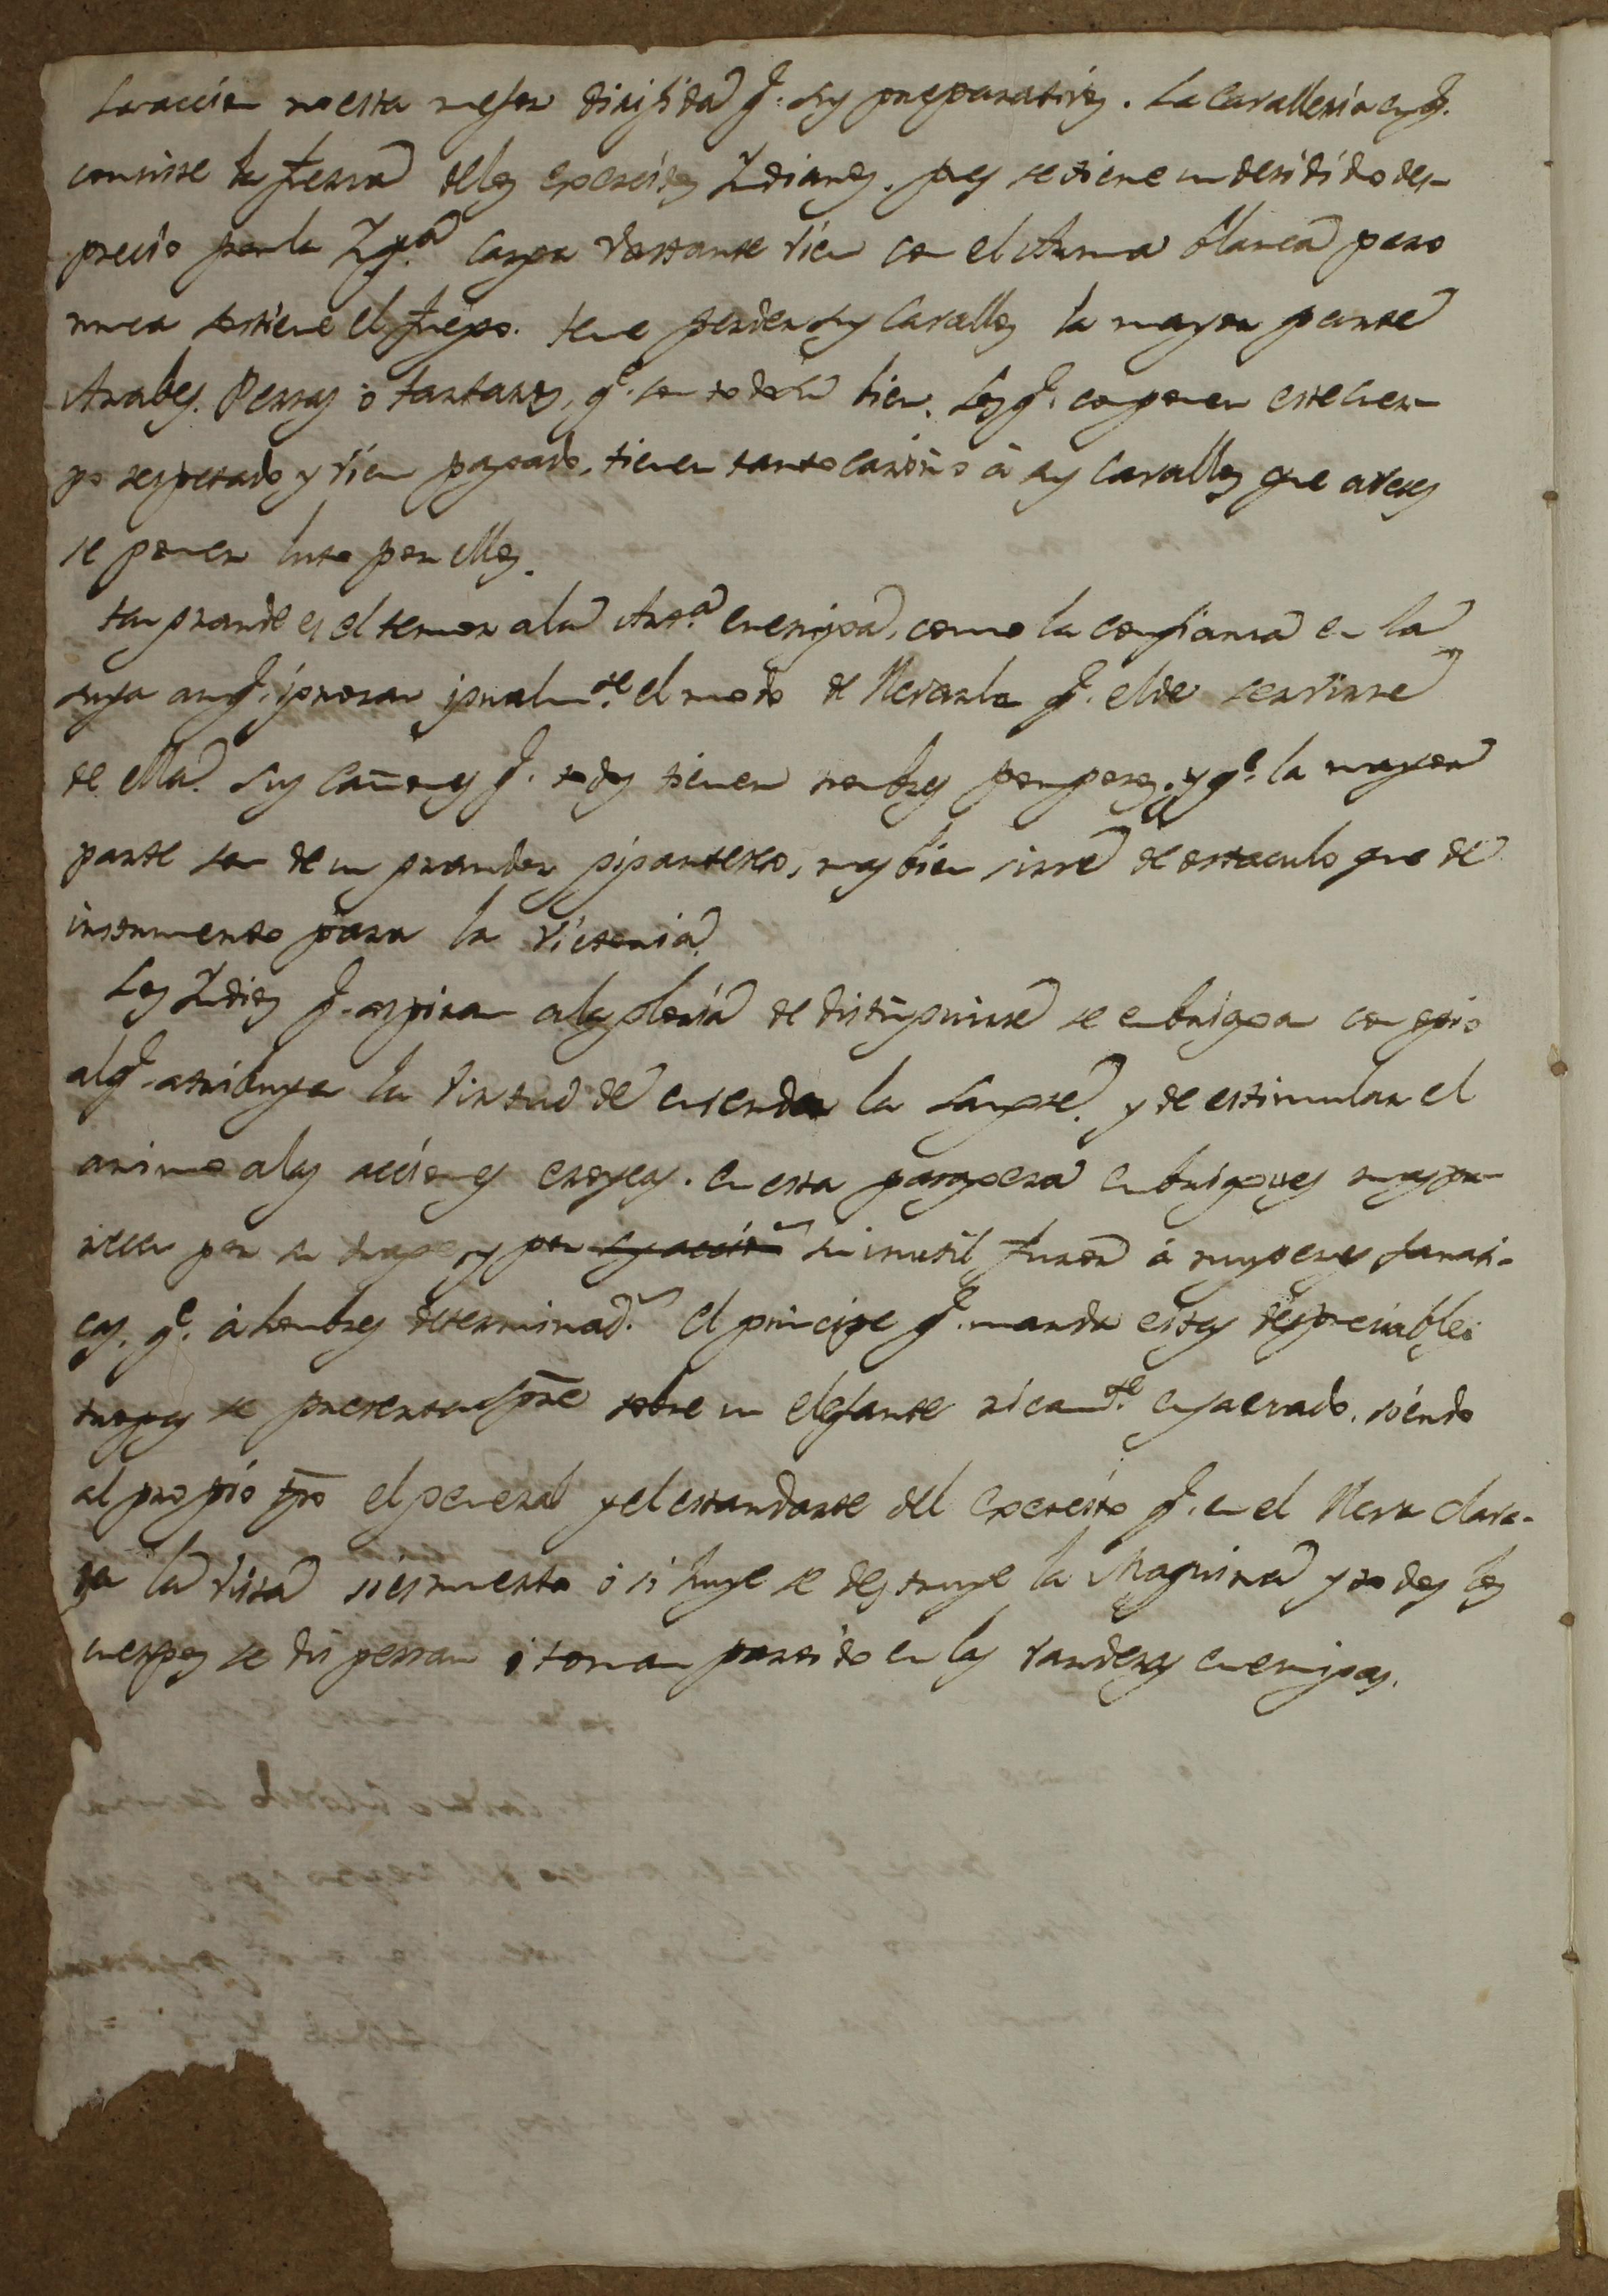 La accion no esta mejor dirijida q.e sus preparativos. La Cavalleria en q.e
consiste la fuerza de los exercitos Indianos, pues se tiene un desidido des-
precio por la Ynf.a carga vastante vien con el Arma blanca pero
nunca sostiene el fuego. teme perder sus Cavallos la mayor parte
Arabes, Persas ò tartaros, q.e son todo su bien. Los q.e componen este cuer-
po respetado y vien pagado, tienen tanto cariño à sus Cavallos que aveses
se ponen luto por ellos.
tan grande es el temor a la Art.a enemiga, como la confianza en la
suya aunq.e ignoran igualm.te el modo de llevarla q.e el de servirse
de ella. Sus Cañones q.e todos tienen nombres pomposos, y q.e la mayor
parte son de un grandor gigantesco, mas bien sirve de ostaculo que de
instrumento para la victoria.
Los Indios q.e aspiran a la gloria de distinguirse se embriagan con opio
al q.e atribuyen la virtud de ensender la sangre, y de estimular el
animo a las acciones eroycas. en esta pasagera embriagues mas pa-
recen por su trage, y por su accion su inutil furor à mugeres fanati-
cas, q.e à hombres determinad.s El principe q.e manda estas despreciables
tropas se presenta spre sobre un elefante ricam.te enjaezado, siendo
al propio tpo el general y el estandarte del exercito q.e en el lleva clava-
da la vista si es muerto ò si huye se destruye la Maquina y todos los
cuerpos se dispersan ò toman partido en las vanderas enemigas.